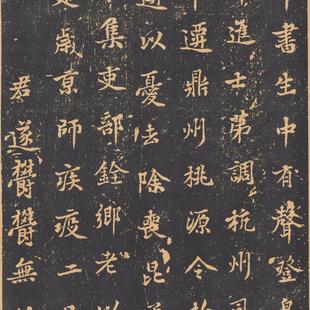 書生中有聲登皇
進士苐調杭州司
遷鼎州桃源令
以憂法除喪昆
集吏部銓鄉老
歲京師疾疫工
君遂欝欝無